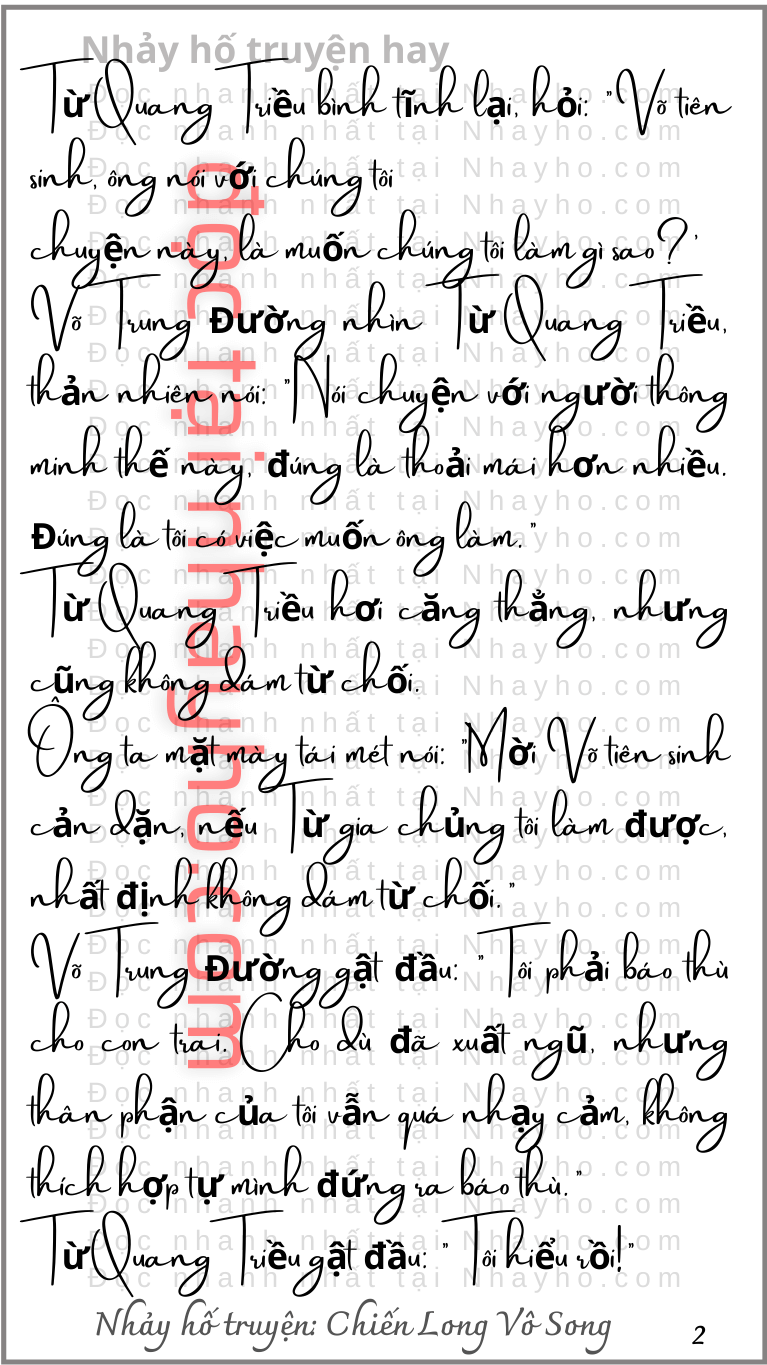 Nhảy hố truyện hay
Từ Quang Triều bình tĩnh lại, hỏi: "Võ tiên
sinh, ông nói với chúng tôi
chuyện này, là muốn chúng tôi làm gì sao?'
Võ Trung Đường nhìn Từ Quang Triều,
thản nhiên nói: "Nói chuyện với người thông
minh thế này, đúng là thoải mái hơn nhiều.
Đúng là tôi có việc muốn ông làm."
Từ Quang Triều hơi căng thẳng, nhưng
cũng không dám từ chối.
Ông ta mặt mày tái mét nói: "Mời Võ tiên sinh
cản dặn, nếu Từ gia chủng tôi làm được,
nhất định không dám từ chối."
Võ Trung Đường gật đầu: "Tôi phải báo thù
cho con trai. Cho dù đã xuất ngũ, nhưng
thân phận của tôi vẫn quá nhạy cảm, không
thích hợp tự mình đứng ra báo thù."
Từ Quang Triều gật đầu: "Tôi hiểu rồi!"
đọc tại nhayho.com
Đọc nhanh nhất tại Nhayho.com
Nhảy hố truyện: Chiến Long Vô Song
2